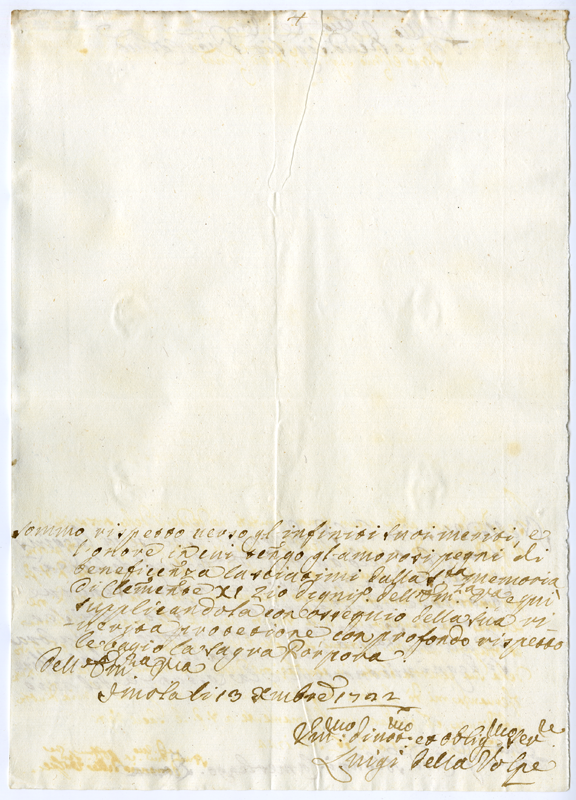 sommo rispetto verso gl'infiniti suoi meriti, e
l'onore in cui tengo gl'amorosi pegni di
beneficenza lasciatimi dalla S.ta memoria
di Clemente XI Zio degnis.o dell'Em.za V.ra e qui
supplicandola con ossequio della sua ri-
-uerita protezione con profondo rispetto
le bagio la sagra Porpora.
Dell'Em.za V.ra
Imola li 13 Xmbre 1722
Um.mo Diuot.mo et obblig.mo Ser.re
Luigi Della Volpe